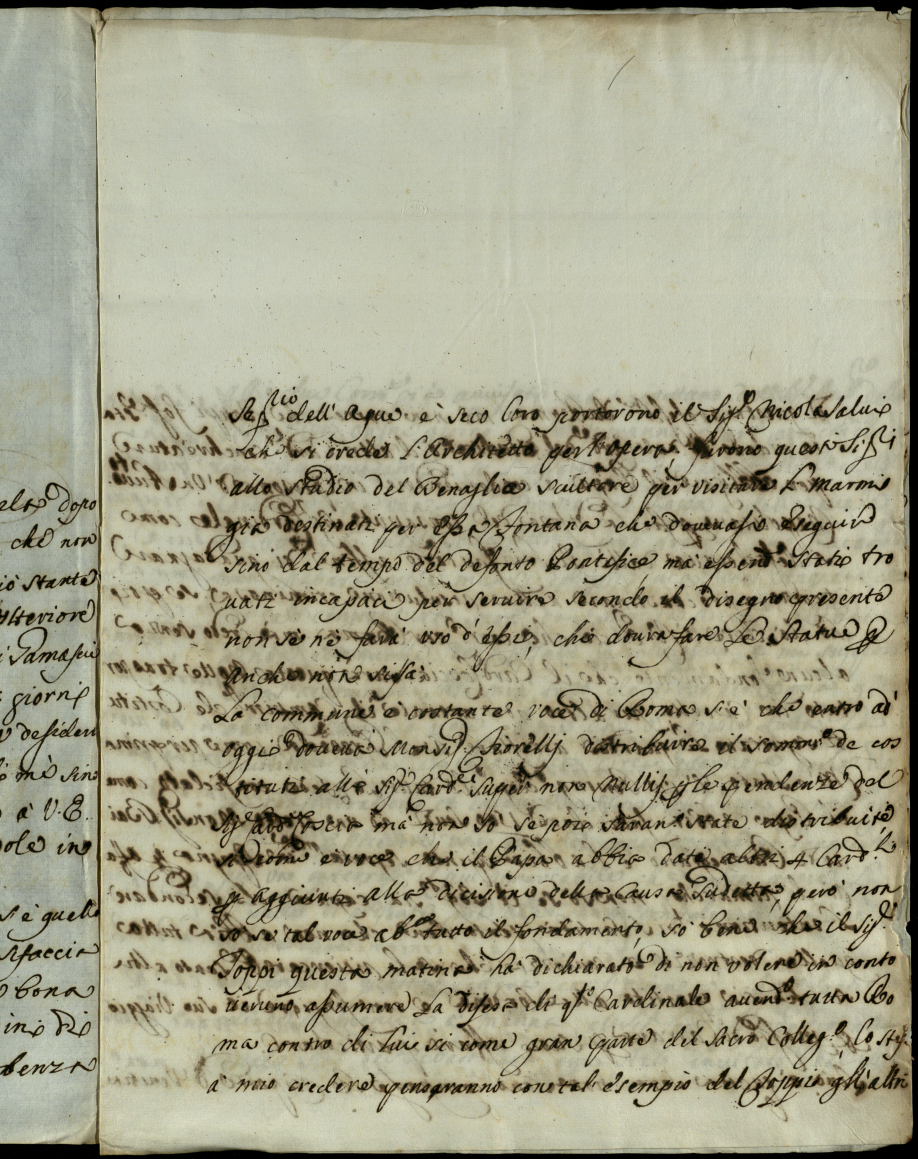 els dopo
che non
iò stante
ulteriore
giorni
desideri
mà sin
à V. E.
ole in
s è quello
sfaccia
bona
in di
benza
dell'Aque e seco loro portorono il Sig.r Nicola Salui
che si crede l'Architetto per l'opera. furono questi Sig.ri
allo studio del Benaglia scultore per visitare li marmi
già destinati per essa Fontana che doueuasi eseguire
sino dal tempo del defonto Pontefice, ma essend.o stati tro
uati incapaci per seruire secondo il disegno presente
non se ne farà uso d'essi, chi dourà fare le statue p
anche non si sà.
La commune e costante voce di Roma si è che entro ad
oggi douea Monsig.r Fiorelli distribuire il somm.o de cos
tituti alli Sig.ri Card.li super non nullis, e le pendenze del
Sig. Card. Coscia mà non sò se poi saran state distribuite,
vi è voce che il Papa abbia dato altri 4 Card.li
p aggiunti alla dicisione della Causa sudetta, però non
sò se tal voce ab.a tutto il fondamento, sò bene che il Sig.r
Zoppi questa matina hà dichiarato di non volere in conto
ueruno assumere la difesa di q.to Cardinale auend.o tutta Ro
ma contro di lui si come gran parte del Sacro Colleg.o, lo stes
à mio credere penseranno con tal esempio del Zoppi gl'altri